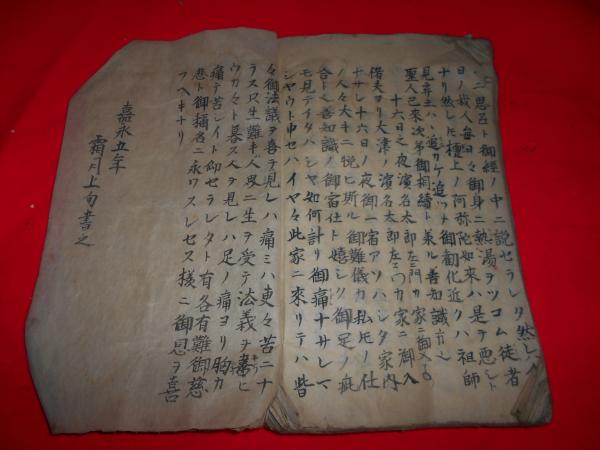 ニ思召ト御経ノ中ニ説セラレタ然レハ
日ノ我人毎日々御身ニ熱湯ヲツコム徒者
ナリ然レ𪜈檀上ノ阿弥陀如来ハ是ヲ悪シト
見弃玉ハス追カケ追ツメ御勧化近クハ祖師
聖人已来次第御相続ト来ル善知識
十六日之夜濱名太郎左ェ門カ家ニ御入
偖夫ヨリ大津ノ濱名太郎左ェ門カ家内
ナサレ十六日ノ夜御一宿アソハシタ家内
ノ人々大キニ悦ヒ斯ル御難儀カ私𪜈ノ仕
合ト善知識ノ御宿仕ト嬉シク御足ノ疵
モ見テイタハシヤ如何計リ御痛ナサレマ
シヤウト申セハイヤ々此家ニ来リテハ皆
々御法議ヲ喜テ見レハ痛ミハ更々苦ニナ
ラス只生難キ人界ニ生ヲ受テ法義ヲ喜ヒ
ウカ々ト暮ス人ヲ見レハ足ノ痛ヨリ胸カ
痛テ苦シイト仰セラレタト有各有難御慈
悲ト御称名ニ永ワスレセス様ニ御恩ヲ喜
フヘキナリ
嘉永五年
霜月上旬書之